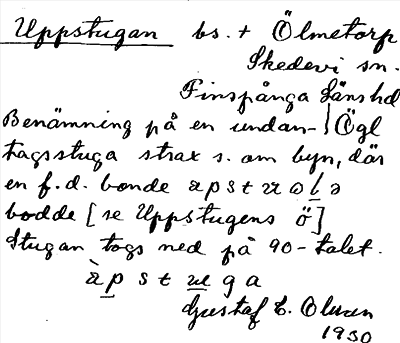 Uppstugan bs. + Ölmetorp
Skedevi sn.
Finspånga Länshd
Benämning på en undan- Ögl
tagsstuga strax s. om byn, där
en f.d. bonde
bodde [se Uppstugens ö]
Stugan togs ned på 90-talet.
Gustaf E.
1930